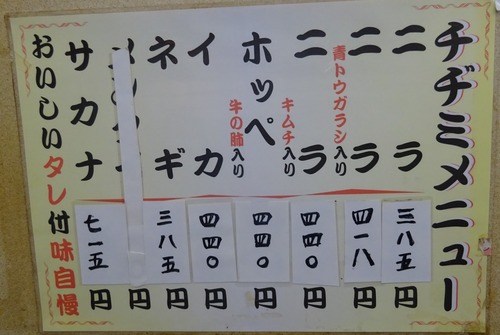 チヂミメニュー
ニラ 三八五円
ニラ 青トウガラシ入り 四一八円
ニラ キムチ入り 四四〇円
ホッペ 牛の肺入り 四四〇円
イカ 四四〇円
ネギ 三八五円
円
サカナ 七一五円
おいしいタレ付味自慢